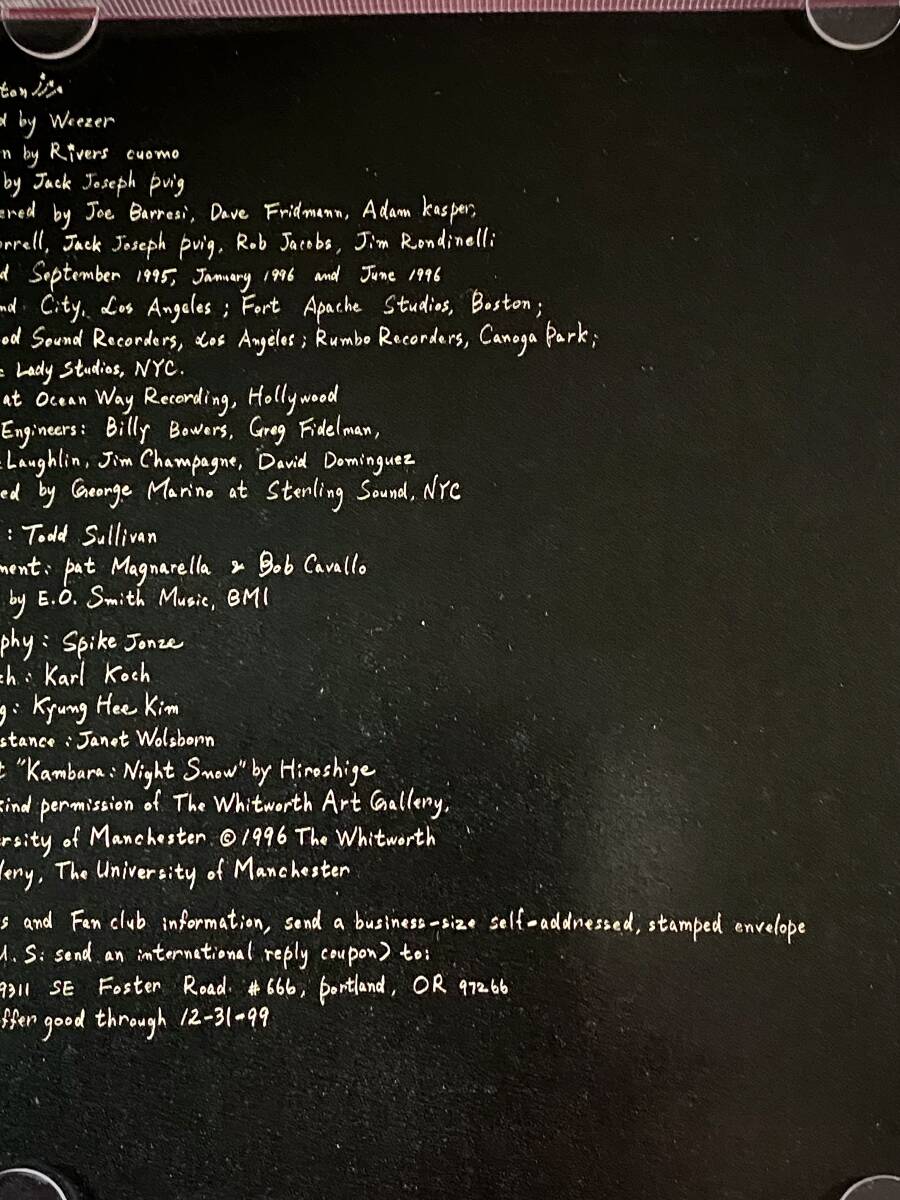 ton
d by Weezer
n by Rivers cuomo
by Jack Joseph puig
ered by Joe Barresi, Dave Fridmann, Adam Kasper,
orrell, Jack Joseph puig, Rob Jacobs, Jim Rondinelli
d September 1995, January 1996 and June 1996
nd City, Los Angeles; Fort Apache Studios, Boston;
od Sound Recorders, Los Angeles; Rumbo Recorders, Canoga Park;
c Lady Studios, NYC.
at Ocean Way Recording, Hollywood
Engineers: Billy Bowers, Greg Fidelman,
cLaughlin, Jim Champagne, David Dominguez
ed by George Marino at Sterling Sound, NYC
: Todd Sullivan
ment: pat Magnarella & Bob Cavallo
by E.O. Smith Music, BMI
phy: Spike Jonze
ch: Karl Koch
g: Kyung Hee Kim
stance: Janet Wolsborn
t "Kambara: Night Snow" by Hiroshige
kind permission of The Whitworth Art Gallery,
rsity of Manchester © 1996 The Whitworth
lery, The University of Manchester
s and Fan club information, send a business-size self-addressed, stamped envelope
U.S: send an international reply coupon) to:
9311 SE Foster Road #666, portland, OR 97266
ffer good through 12-31-99